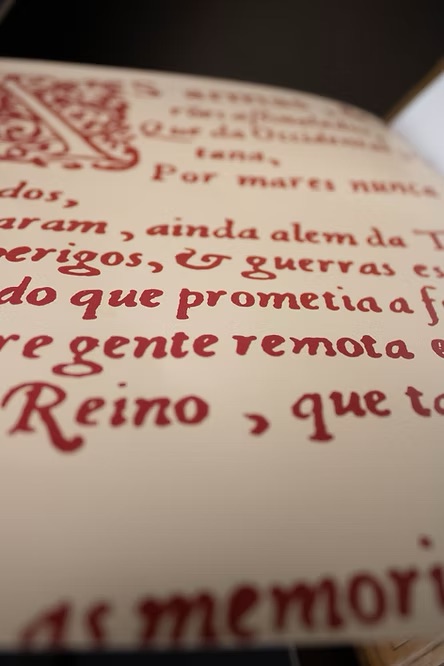 S armas
Que da Occidental
tana,
Por mares nunca
dos,
aram , ainda alem da T
perigos, & guerras es
do que prometia a f
re gente remota e
Reino , que ta
as memori